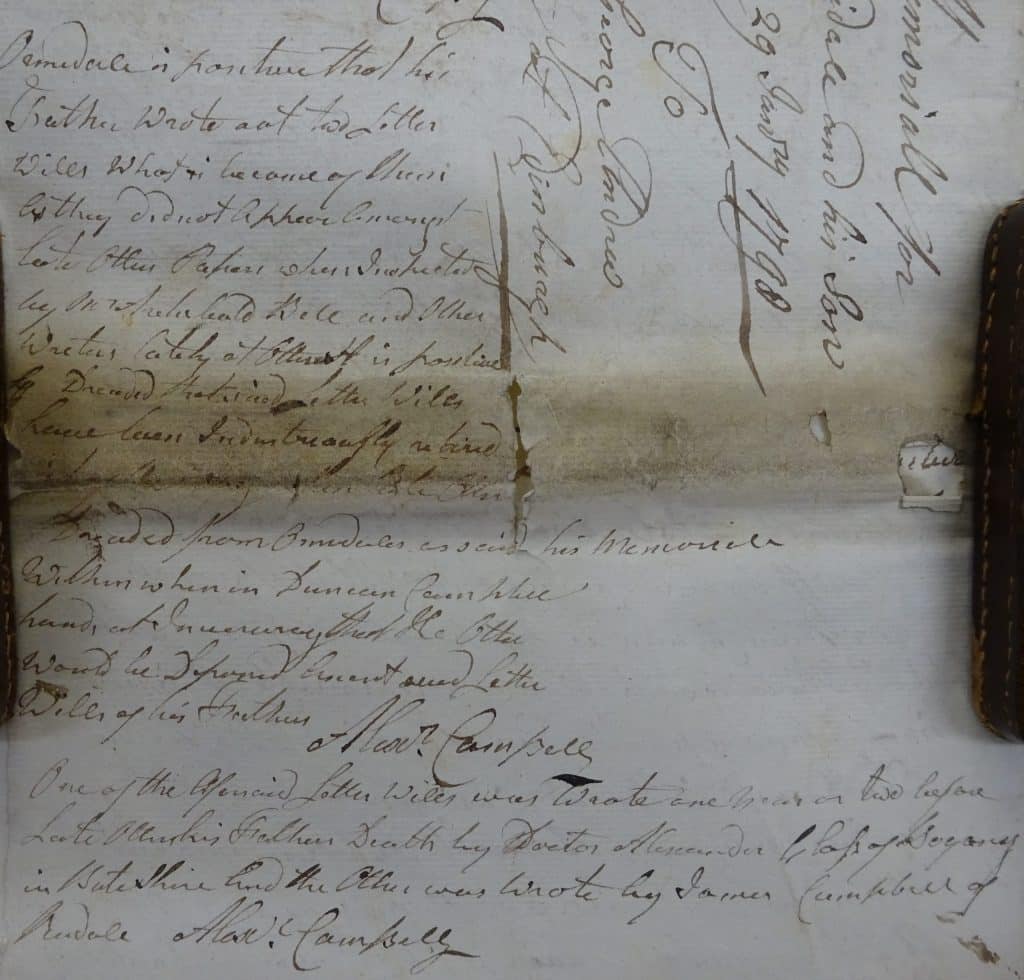 Ormidale is positive that his
Father Wrote out two Letter
Wills What is become of them
as they did not Appear Amongst
late Otters Papers when Inspected
by Mr Archibald Bell and Other
Writers lately at Otter it is positive
Dreaded that said Letter Wills
have been Industreously
Dreaded from Ormidales as said his Memoriall
Within when in Duncan Campbell
hands at Inveraray that
Would be Letter
Wills of his Fathers
Alexr. Campbell
One of the Aforsaid Letter Wills was Wrote one year or two before
Late Otters his Fathers Death by Doctor Alexander Glass of Bogany
in Bute Shire And the Other was Wrote by James Campbell of
Rudale Alexr. Campbell
Memoriall for
and his Son
29 Janry 1798
To
George Andrew
at Edinburgh